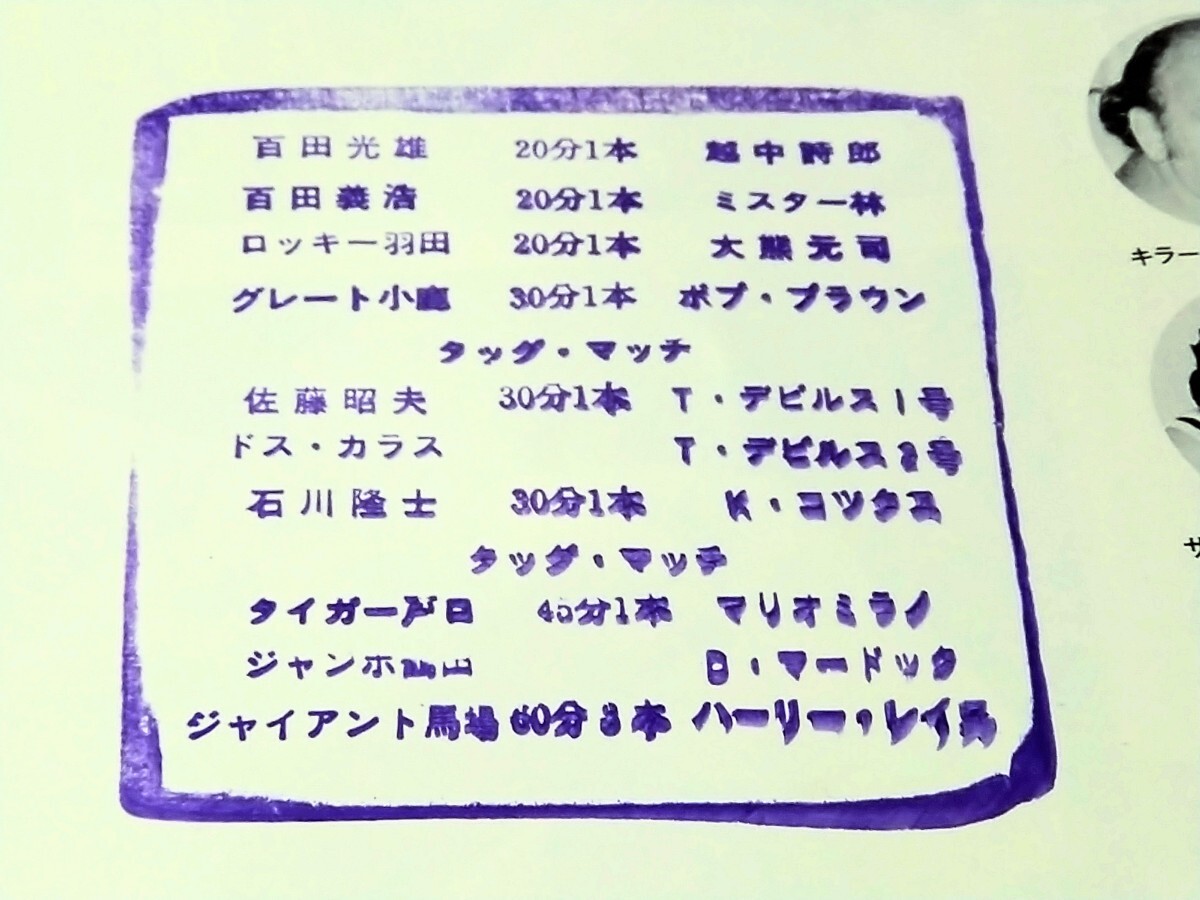 百田光雄 20分1本 越中詩郎
百田義浩 20分1本 ミスター林
ロッキー羽田 20分1本 大熊元司
グレート小鹿 30分1本 ボブ・ブラウン
タッグ・マッチ
佐藤昭夫 30分1本 T・デビルス1号
ドス・カラス T・デビルス2号
石川隆士 30分1本 K・コックス
タッグ・マッチ
タイガー戸口 45分1本 マリオミラノ
ジャンボ鶴田 D・マードック
ジャイアント馬場 60分3本 ハーリー・レイス
キラー
サ